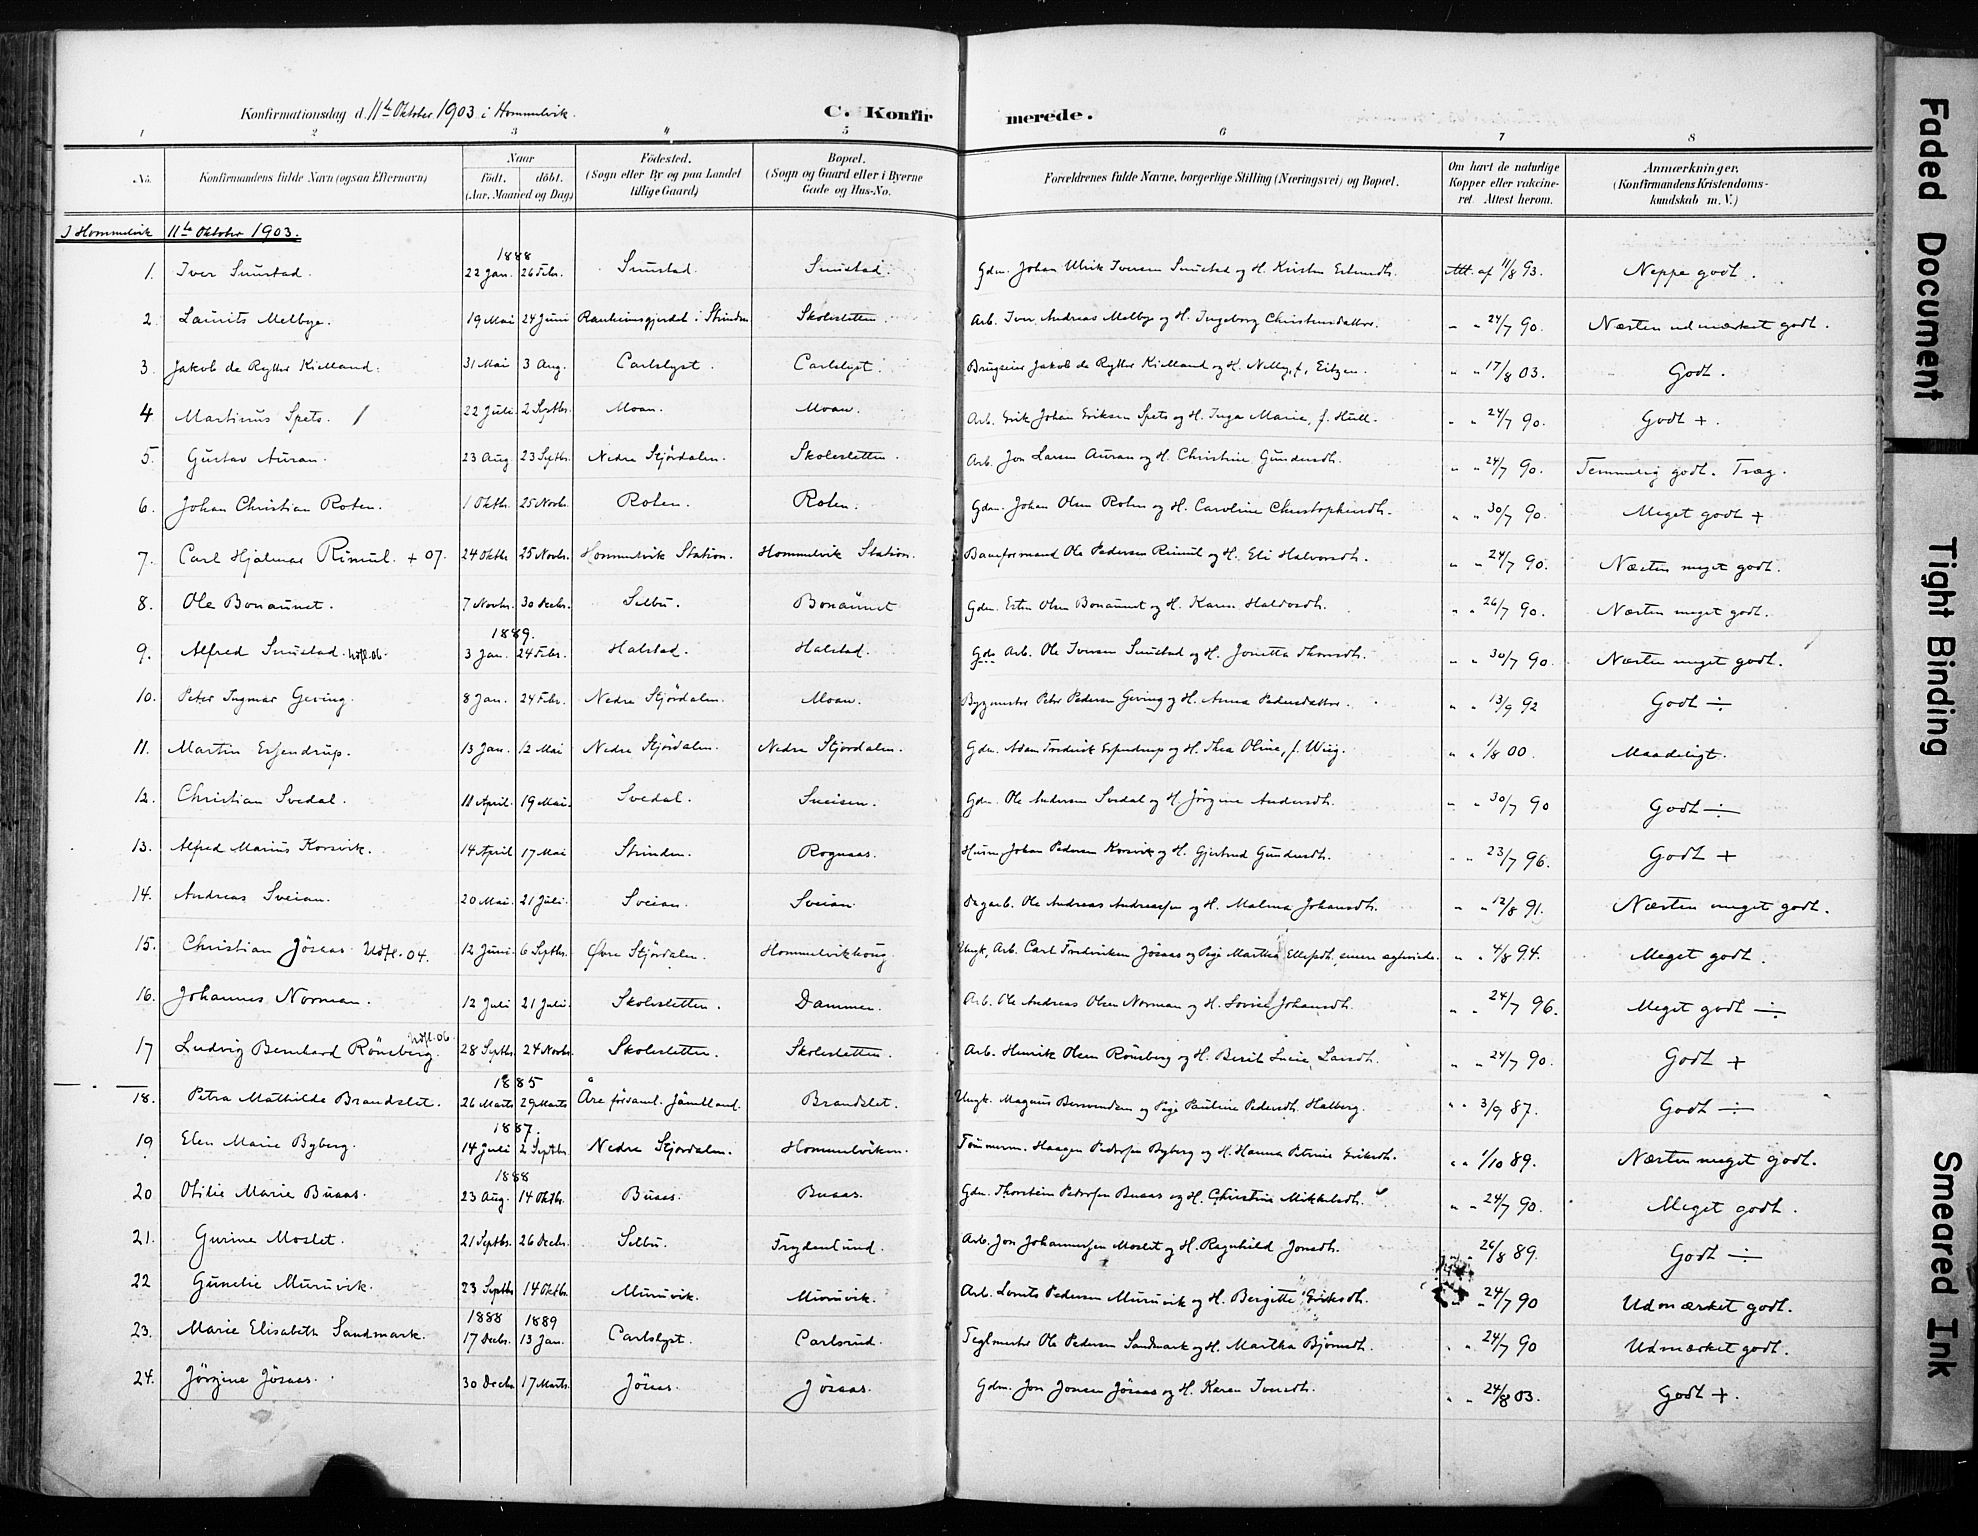 Konfirmationsdag d. 11te Oktober 1903 i Hommelvik.
C. Konfirmerede.
1 2 3 4 5 6 7 8
No. Konfirmandens fulde Navn (ogsaa Efternavn) Naar Födt. döbt. (Aar, Maaned og Dag) Födested. (Sogn eller By og paa Landet tillige Gaard) Bopæl. (Sogn og Gaard eller i Byerne Gade og Hus-No. Forældrenes fulde Navne, borgerlige Stilling (Næringsvei) og Bopæl. Om havt de naturlige Kopper eller vakcineret. Attest herom. Anmærkninger. (Konfirmandens Kristendomskundskab m. V.)
I Hommelvik 11te Oktober 1903.
1888
1. Iver Smistad. 22 Jan. 26 Febr. Smistad. Smistad. Gdm. Johan Ulrik Iversen Smistad og H. Kirstin Estensdtr. Att. af 11/8 93. Neppe godt.
2. Laurits Melbye. 19 Mai 24 Juni Ranheimsgjerdet i Strinden Skolesletten. Arb. Iver Andreas Melbye og H. Ingeborg Christensdatter. " " 24/7 90. Næsten udmærket godt.
3. Jakob de Rytter Kielland. 31 Mai 3 Aug. Carlslyst. Carlslyst. Brugseier Jakob de Rytter Kielland og H. Nelly, f. Eitzen. " " 17/8 03. Godt.
4 Martinus Spets. / 22 Juli 2 Septbr. Moan. Moan. Arb. Erik Johan Eriksen Spets og H. Inga Marie, f. Hull. " " 24/7 90. Godt +.
5. Gustav Auran. 23 Aug 23 Septbr. Nedre Stjördalen. Skolesletten. Arb. Jon Larsen Auran og H. Christine Gundersdtr. " " 24/7 90. Temmelig godt. Træg.
6. Johan Christian Roten. 1 Oktbr. 25 Novbr. Roten. Roten. Gdm. Johan Olsen Roten og H. Caroline Christophersdtr. " " 30/7 90. Meget godt +
7. Carl Hjalmar Rimul. + 07. 24 Oktbr 25 Novbr. Hommelvik Station. Hommelvik Station. Baneformand Ole Pedersen Rimul og H. Eli Halvorsdtr. " " 24/7 90. Næsten meget godt.
8. Ole Bonaunet. 7 Novbr. 30 Decbr. Selbu. Bonaunet Gdm. Esten Olsen Bonaunet og H. Karen Haldosdtr. " " 26/7 90. Næsten meget godt.
1889.
9. Alfred Smistad. Udfl. 06. 3 Jan. 24 Febr. Halstad. Halstad. Gdm Arb. Ole Iversen Smistad og H. Jonetta Thomsdtr. " " 30/7 90. Næsten meget godt.
10. Peter Ingmar Geving. 8 Jan. 24 Febr. Nedre Stjördalen. Moan. Bygmester Peter Pedersen Geving og H. Anna Pedersdatter. " " 13/9 92 Godt ÷
11. Martin Esfendrup. 13 Jan. 12 Mai Nedre Stjördalen. Nedre Stjordalen. Gdm. Adam Frederik Esfendrup og H. Thea Oline, f. Wiig. " " 1/8 00. Maadeligt.
12. Christian Svedal. 11 April. 19 Mai. Svedal. Sneisen. Gdm. Ole Andersen Svedal og H. Jörgine Andersdtr. " " 30/7 90 Godt ÷
13. Alfred Marius Korsvik. 14 April 17 Mai Strinden. Rognaas. Husm. Johan Pedersen Korsvik og H. Gjertrud Gundersdtr. " " 23/7 96. Godt +
14. Andreas Sveian. 20 Mai. 21 Juli. Sveian. Sveian Dagarb. Ole Andreas Andreassen og H. Malena Johansdtr. " " 12/8 91. Næsten meget godt.
15. Christian Jösaas. Udfl. 04. 12 Juni 6 Septbr. Øvre Stjördalen. Hommelvikhoug. Ungk., Arb. Carl Frederiksen Jösaas og Pige Martha Ellefsdtr, senere ægteviede. " " 4/8 94. Meget godt.
16. Johannes Norman. 12 Juli 21 Juli. Skolesletten. Dammen. Arb. Ole Andreas Olsen Norman og H. Lovise Johansdtr. " " 24/7 96. Meget godt ÷
17 Ludvig Bernhard Rönsberg. Udfl. 06. 28 Septbr 24 Novbr. Skolesletten. Skolesletten. Arb. Henrik Olsen Rönsberg og H. Berit Lucie Larsdtr. " " 24/7 90. Godt +
1885
18. Petra Mathilde Brandslet. 26 Marts 29 Marts Åre församl. Jämtland. Brandslet. Ungk. Magnus Bersvendsen og Pige Pauline Pedersdtr. Halberg. " " 3/9 87. Godt ÷
1887.
19 Elen Marie Byberg. 14 Juli 2 Septbr. Nedre Stjördalen. Hommelviken. Tömmerm. Haagen Pedersen Byberg og H. Hanna Petrine Eriksdtr. " " 1/10 89. Næsten meget godt.
1888
20 Otilie Marie Buaas. 23 Aug. 14 Oktbr. Buaas. Buaas. Gdm. Thorstein Pedersen Buaas og H. Christine Mikkelsdtr. " " 24/7 90. Meget godt.
21. Gurine Moslet. 21 Septbr. 26 Decbr. Selbu. Frydenlund. Arb. Jon Johannessen Moslet og H. Ragnhild Jonsdtr. 26/8 89. Godt ÷
22 Gunelie Muruvik. 23 Septbr 14 Oktbr. Muruvik. Muruvik. Arb. Lorents Pedersen Muruvik og H. Bergitte Eriksdtr. " 24/7 90 Udmærket godt.
1888 1889
23. Marie Elisabeth Sandmark. 17 Decbr. 13 Jan. Carlslyst. Carlsrud. Teglmester Ole Pedersen Sandmark og H. Martha Björnsdtr. " " 24/7 90 Udmærket godt.
24. Jörgine Jösaas. 30 Decbr 17 Marts. Jösaas. Jösaas. Gdm. Jon Jonsen Jösaas og H. Karen Iversdtr. " " 24/8 03. Godt +.
Faded Document
Tight Binding
Smeared Ink